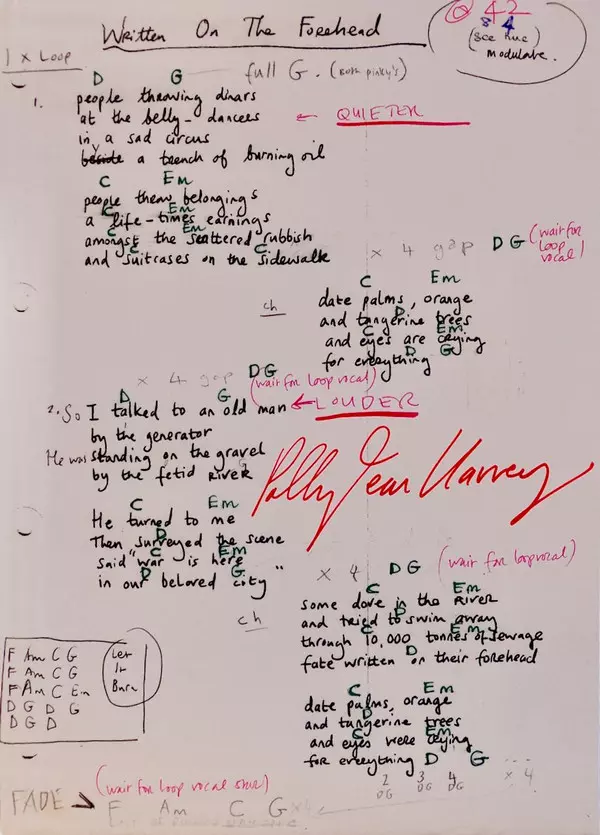 Written On The Forehead
@ 42
84
(see Huc)
modulate.
1 x Loop
D G full G. (Both pinky's)
1. people throwing dinars
at the belly-dancers ← QUIETER
in a sad circus
beside a trench of burning oil
C Em
people throw belongings
Em
a life-times earnings
C Em
amongst the scattered rubbish
C
and suitcases on the sidewalk
x 4 gap D G (wait for loop vocal)
C Em
ch date palms, orange
D
and tangerine trees
C Em
and eyes are crying
D G
for everything
x 4 gap D G (wait for loop vocal)
D G
2. So I talked to an old man ← LOUDER
by the generator
He was standing on the gravel
by the fetid RIVER
Polly Jean Harvey
C Em
He turned to me
D
Then surveyed the scene
C Em
said "war is here
D G
in our beloved city"
x 4 D G (wait for loop vocal)
C Em
ch some dove in the RIVER
D
and tried to swim away
C Em
through 10,000 tonnes of sewage
D
fate written on their forehead
C Em
date palms, orange
D
and tangerine trees
C Em
and eyes were crying
for everything D G
2 3 4 x 4
DG DG DG
F Am C G
F Am C G
F Am C Em
D G D G
D G D
Let
It
Burn
(wait for loop vocal
FADE → F Am C G x 4